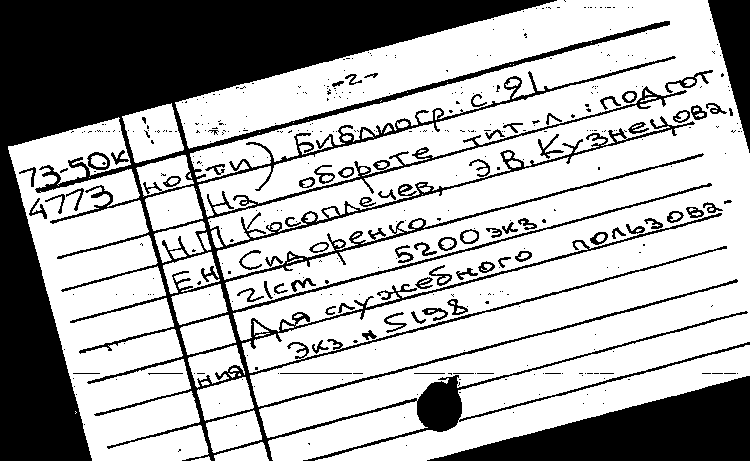 -2-
73-50к
4773
ности). Библиогр.: с. 91.
На обороте тит. л.: подгот.
Н.П. Косоплечев, Э.В. Кузнецова,
Е.Н. Сидоренко.
21 см. 5200 экз.
Для служебного пользова-
ния. Экз. № 5198.